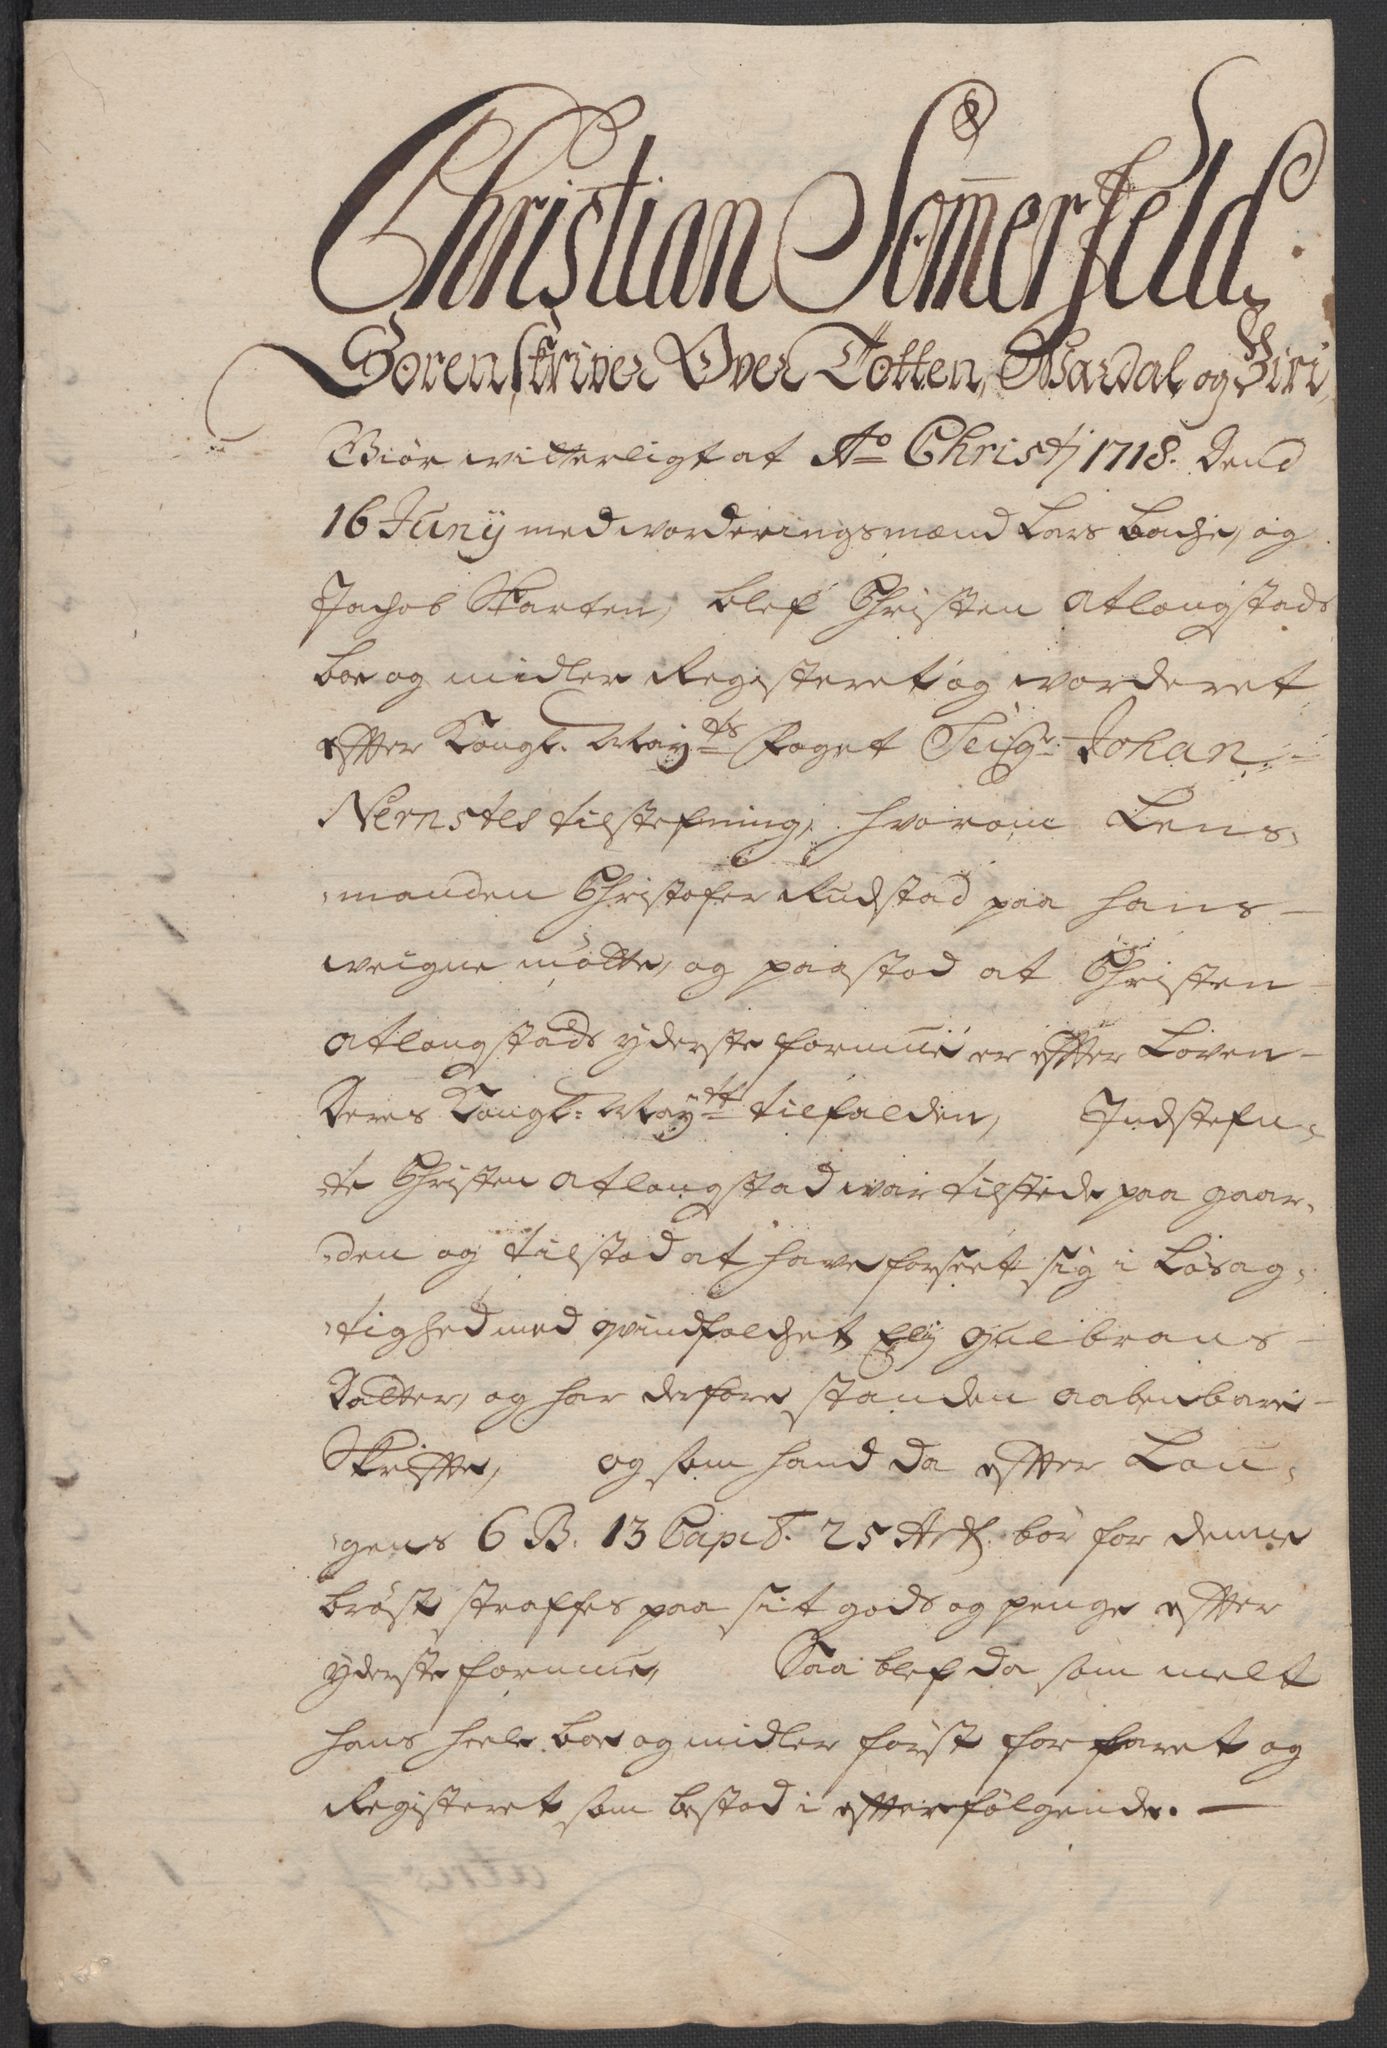 Christian Som̄erfeld,
Sorenskriver Over Totten, Wardal og Biri,
Giør witterligt at Ao Christj 1718. Dend
16 Junij med worderings mænd Lars Bache, og
Jachob Skarten, blef Christen Atlongstads
boe og midler Registeret og worderet
effter Kongl. Mayts Foget Seigr. Johan
Nernstes tilstefning, hvorom Lens-
manden Christofer Rudstad paa hans
weigne mødte, og paastod at Christen
Atlongstads yderste formue er effter Loven
Deres Kongl: Maytt tilfalden, Indstefn-
te Christen Atlongstad war tilstede paa gaar-
den og tilstod at have forseet sig i Løsag-
tighed med qvindfolchet Elj Gulbrans
Datter, og har derfore standen aabenbare
Skriffte, og som hand da effter Lou-
gens 6 B. 13 Capit. 25 Art. bør for denne
brøst straffes paa sit gods og penge effter
yderste formue, Saa blef da som melt
hans heele boe og midler først forfaret og
Registeret som bestod i effterfølgende.